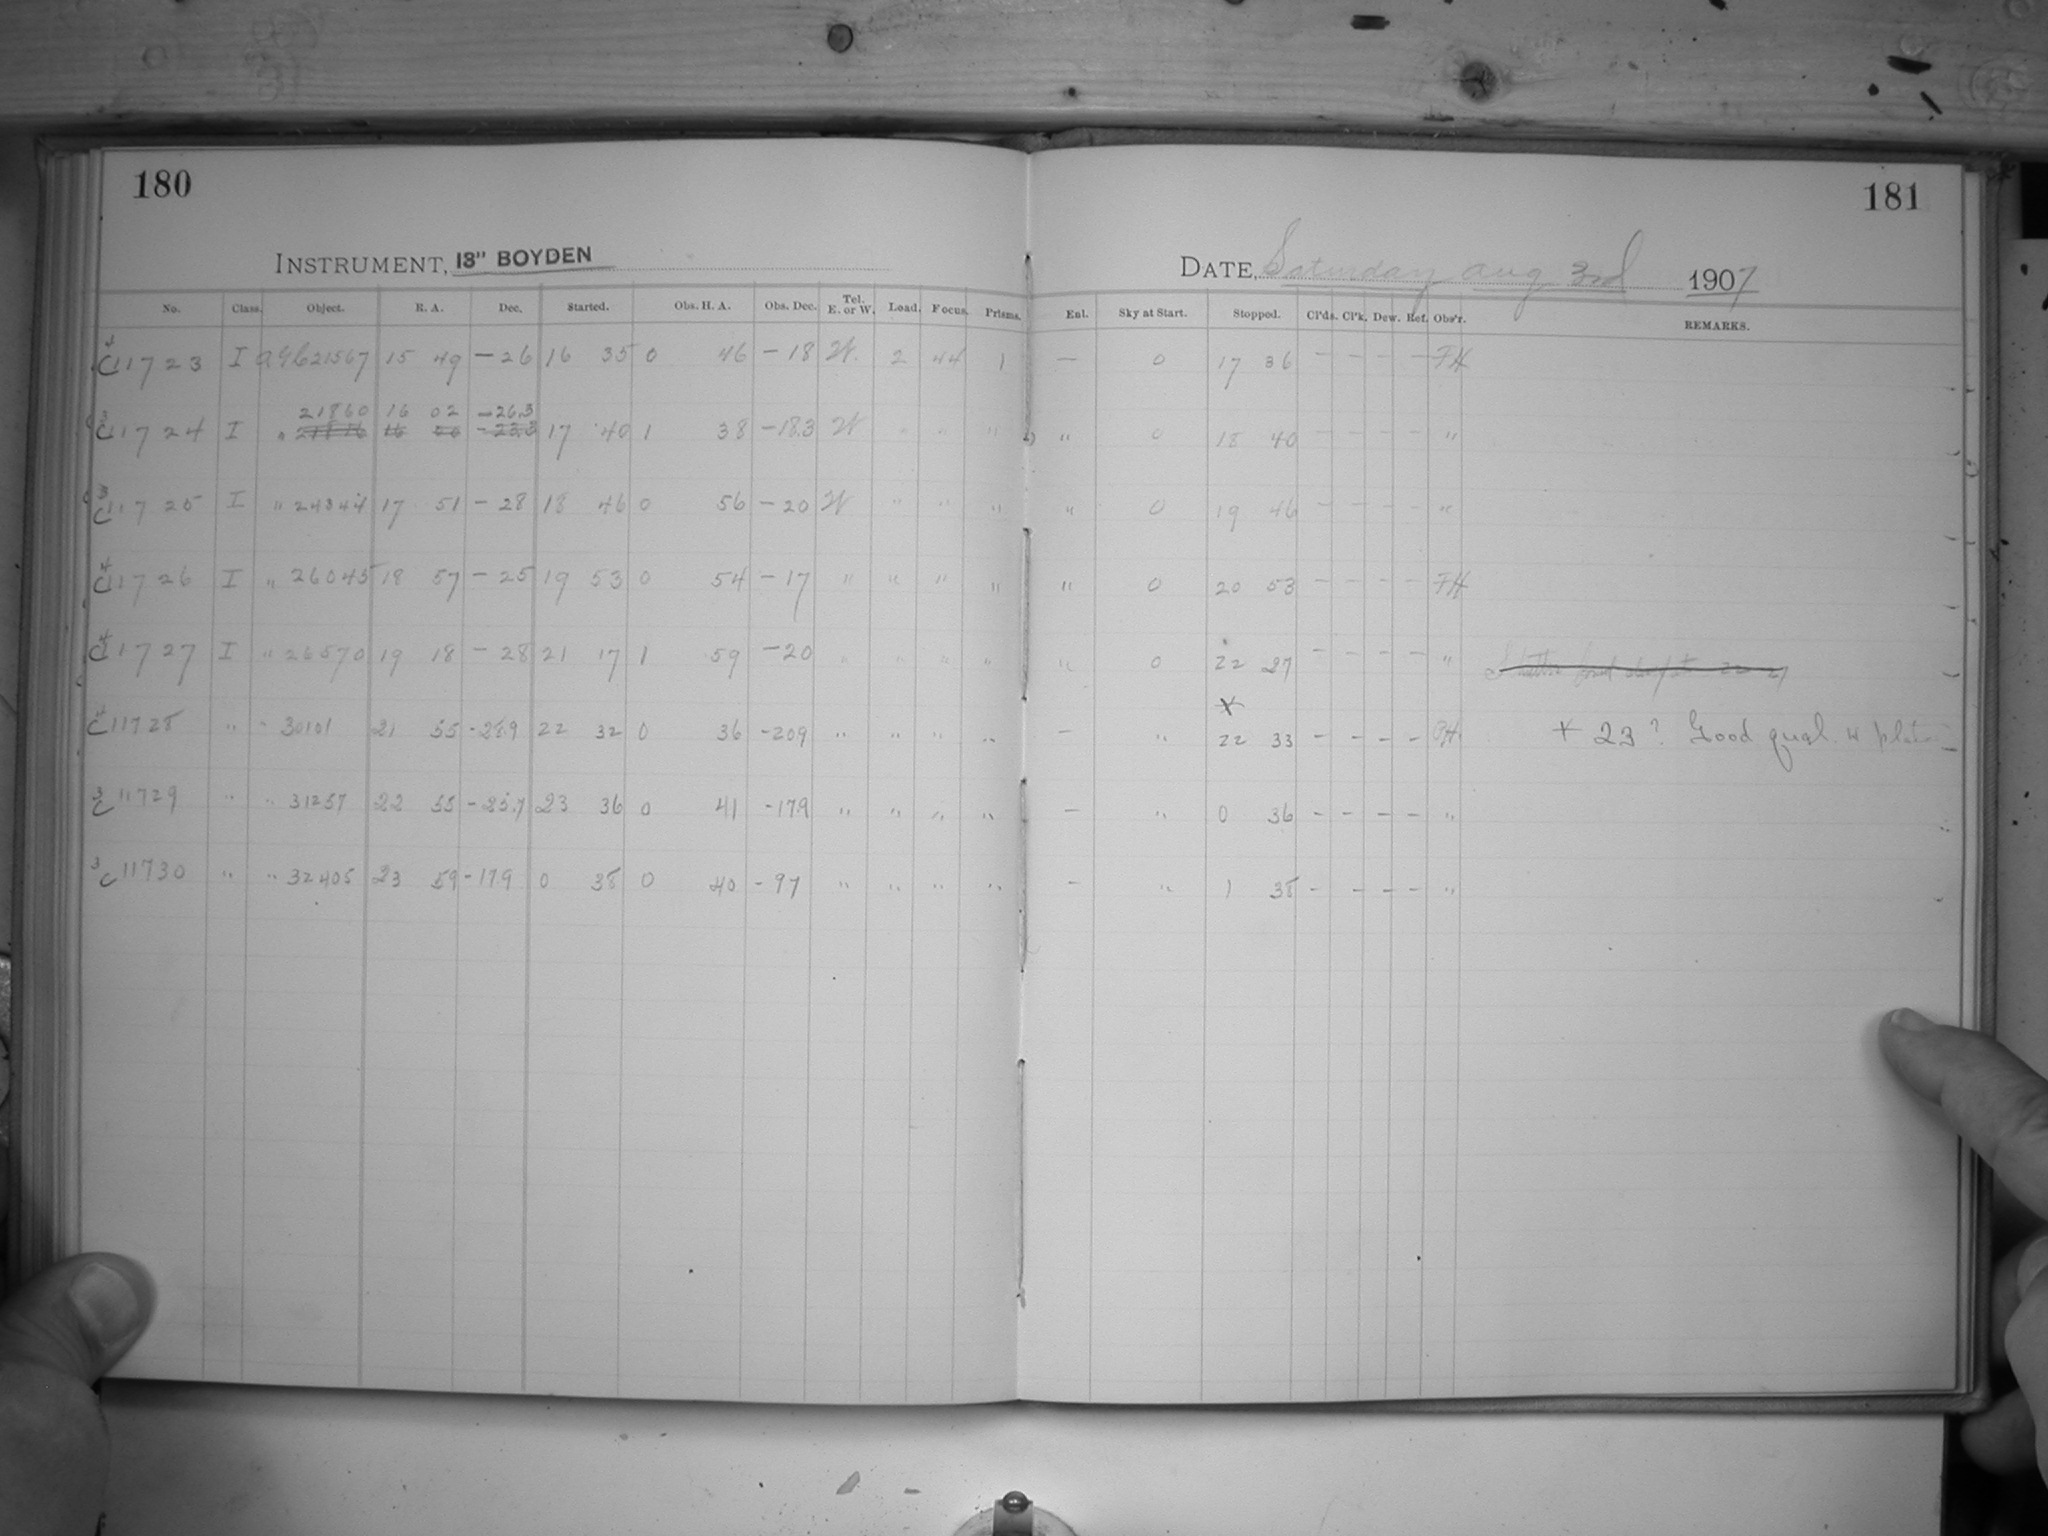 180
181
INSTRUMENT, 13" BOYDEN
DATE, Saturday Aug 3rd 1907
No. Class. Object. R. A. Dec. Started. Obs. H. A. Obs. Dec. Tel. E. or W. Load. Focus. Prisms. Enl. Sky at Start. Stopped. Cl'ds. Cl'k. Dew. Ref. Obs'r. REMARKS.
C11723 I AGC 21567 15 49 -26 16 35 0 46 -18 W. 2 44 1 — 0 17 36 — — — — FH
21860 16 02 -26.3
C11724 I " 17 40 1 38 -18.3 W " " " " 0 18 40 — — — — "
C11725 I " 24344 17 51 -28 18 46 0 56 -20 W " " " " 0 19 46 — — — — "
C11726 I " 26045 18 57 -25 19 53 0 54 -17 " " " " " 0 20 53 — — — — FH
C11727 I " 26570 19 18 -28 21 17 1 59 -20 " " " " " 0 22 27 — — — — "
C11728 " " 30101 21 55 -28.9 22 32 0 36 -20.9 " " " " — " 22 33 — — — — + 23? Good qual. w plate
3 C11729 " " 31257 22 55 -25.7 23 36 0 41 -17.9 " " " " — " 0 36 — — — — "
3 C11730 " " 32405 23 59 -17.9 0 38 0 40 -9.7 " " " " — " 1 38 — — — — "